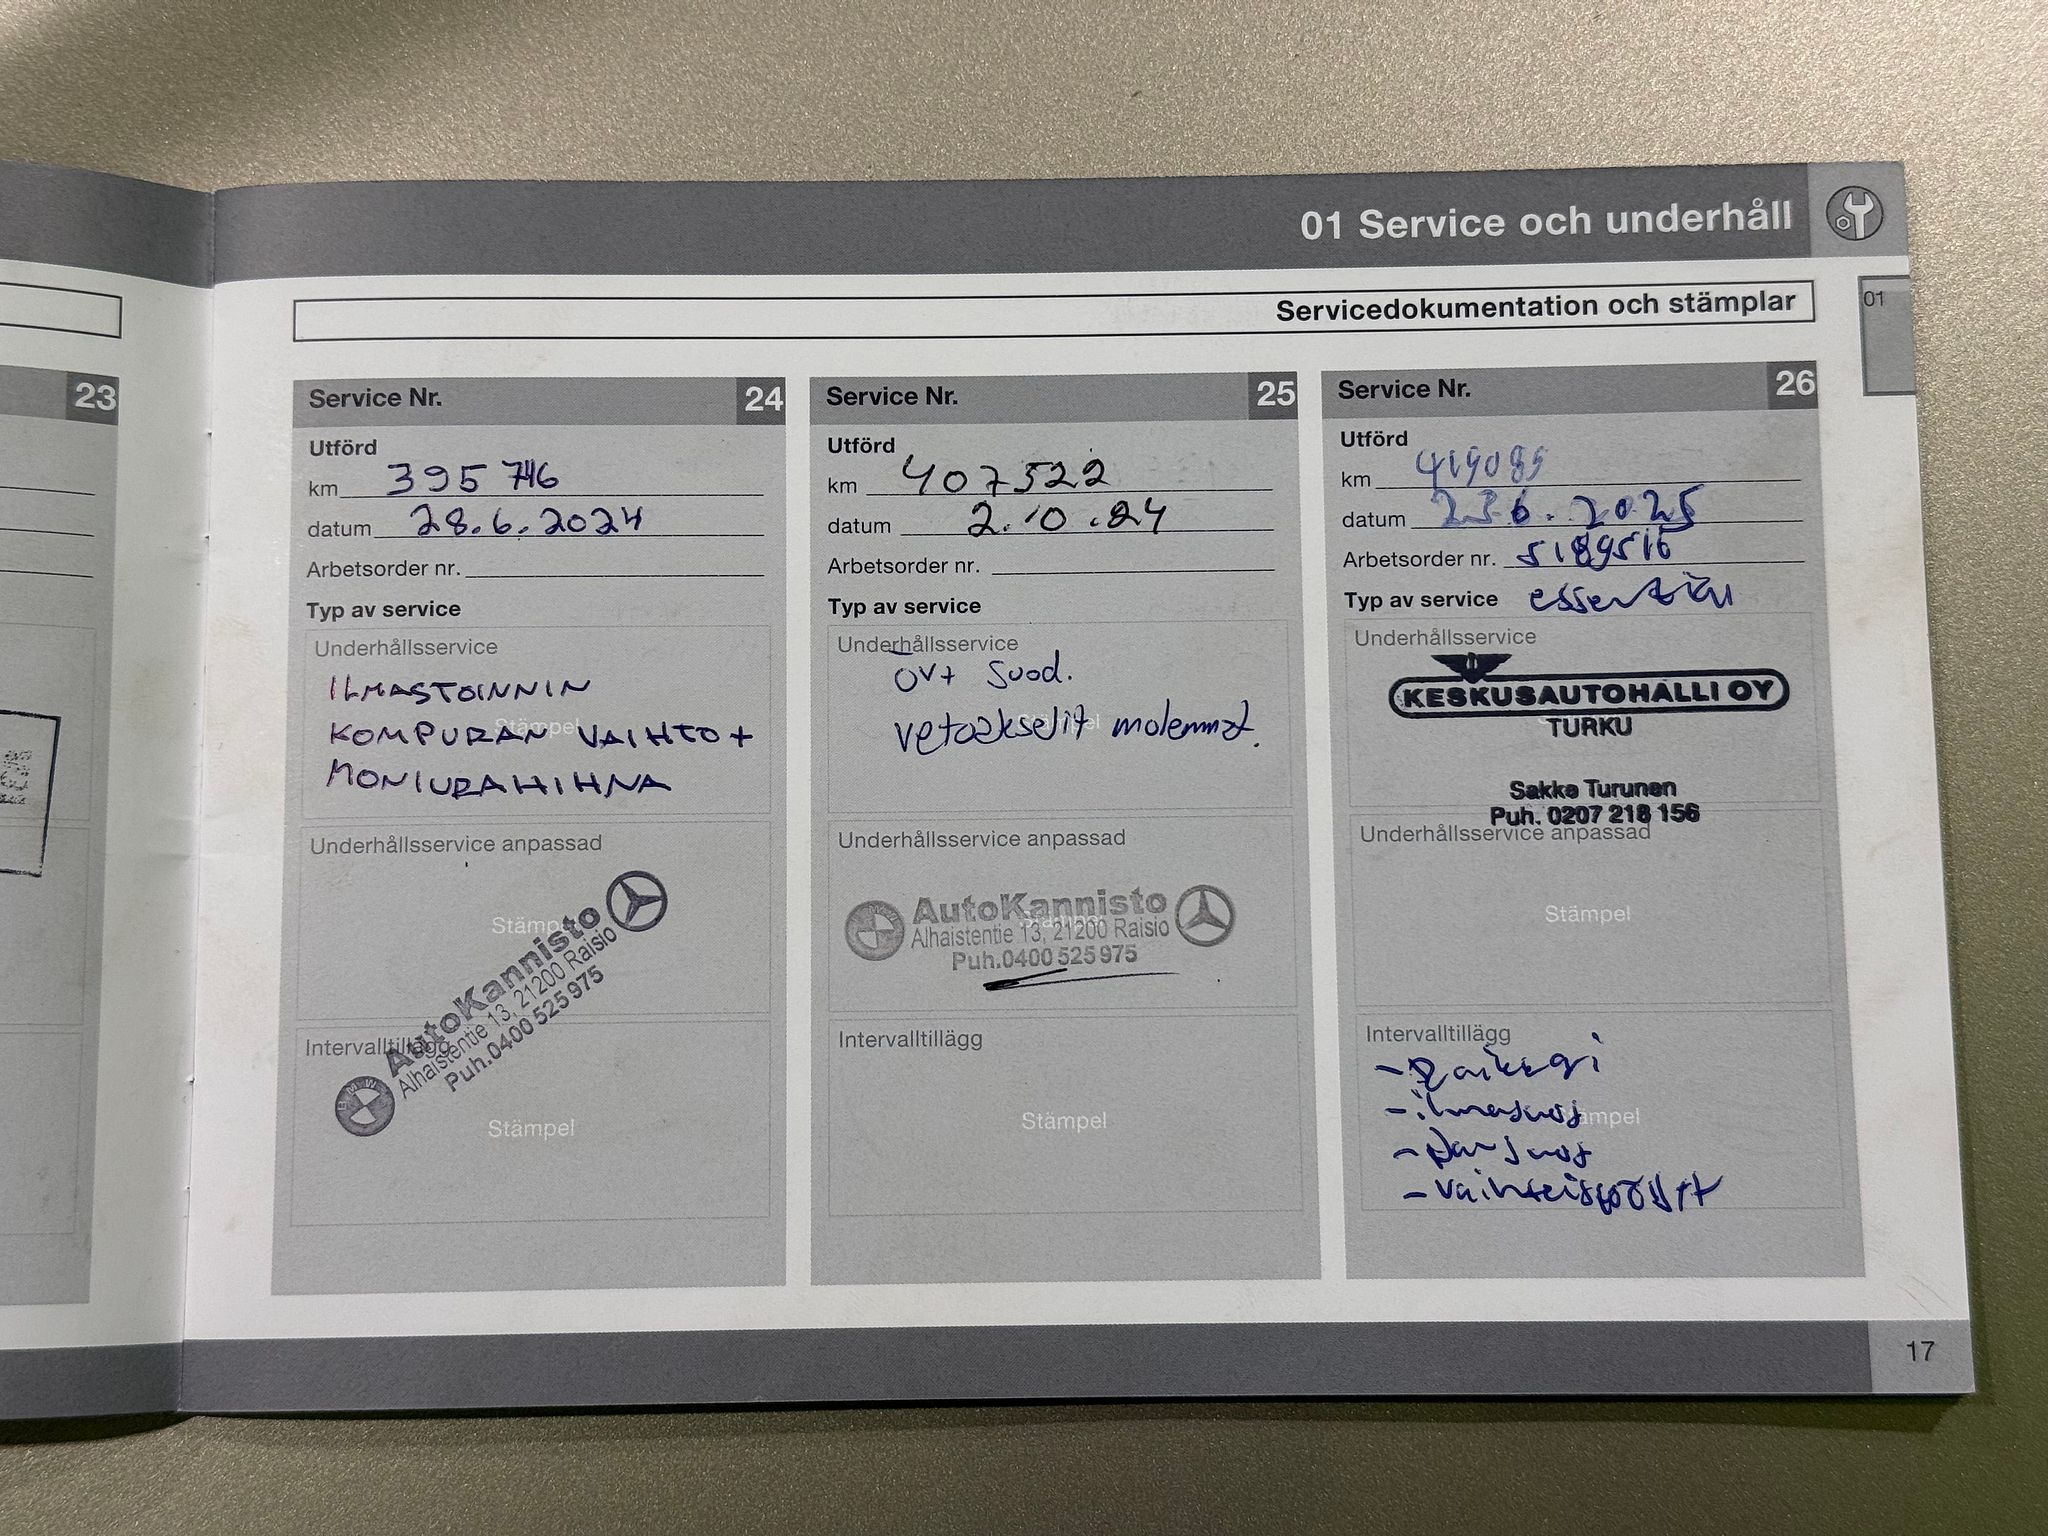 01 Service och underhåll
Servicedokumentation och stämplar
01
23
Service Nr. 24
Utförd
km 395 746
datum 28.6.2024
Arbetsorder nr.
Typ av service
Underhållsservice
ILMASTOINNIN
Stämpel
KOMPURAN VAIHTO +
MONIURAHIHNA
Underhållsservice anpassad
Stämpel
AutoKannisto
Alhaistentie 13, 21200 Raisio
Puh.0400 525 975
BMW
Intervalltillägg
Stämpel
Service Nr. 25
Utförd
km 407522
datum 2.10.24
Arbetsorder nr.
Typ av service
Underhållsservice
öv+ suod.
Stämpel
vetoakselit molemmat.
Underhållsservice anpassad
AutoKannisto
Alhaistentie 13, 21200 Raisio
Puh.0400 525 975
Intervalltillägg
Stämpel
Service Nr. 26
Utförd
km 419089
datum 23.6.2025
Arbetsorder nr. 5189516
Typ av service essential
Underhållsservice
KESKUSAUTOHALLI OY
TURKU
Sakke Turunen
Puh. 0207 218 156
Underhållsservice anpassad
Stämpel
Intervalltillägg
- ilmasuod
Stämpel
17